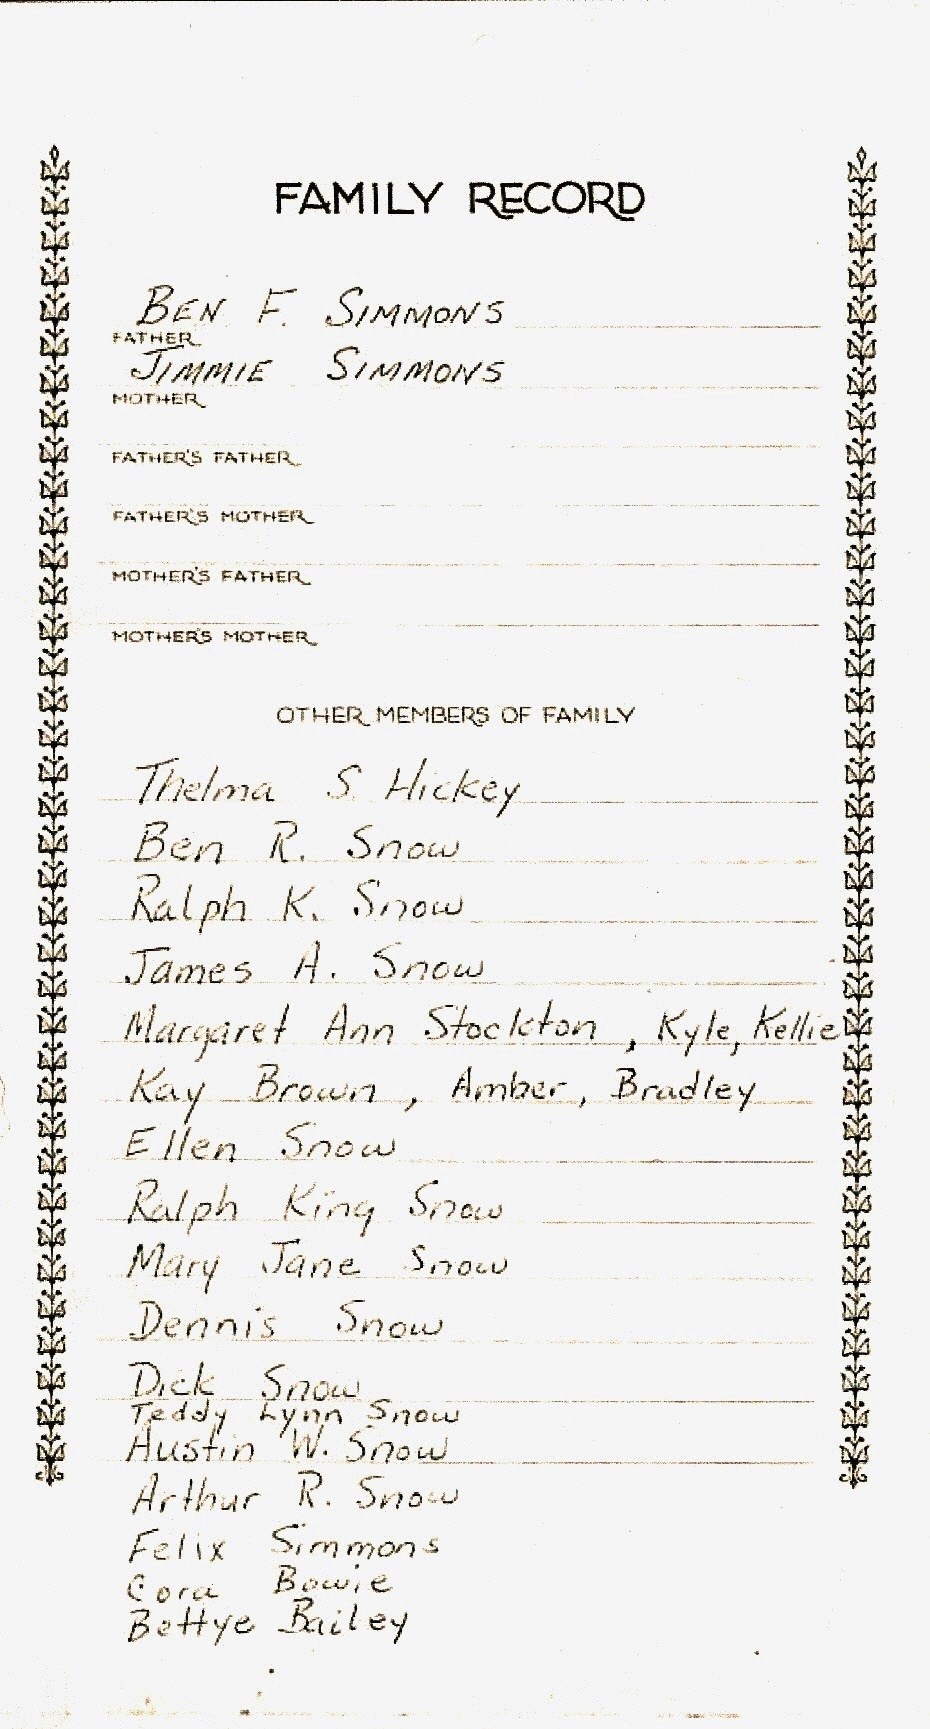 FAMILY RECORD
BEN F. SIMMONS
FATHER
JIMMIE SIMMONS
MOTHER
FATHER'S FATHER
FATHER'S MOTHER
MOTHER'S FATHER
MOTHER'S MOTHER
OTHER MEMBERS OF FAMILY
Thelma S. Hickey
Ben R. Snow
Ralph K. Snow
James A. Snow
Margaret Ann Stockton, Kyle, Kellie
Kay Brown, Amber, Bradley
Ellen Snow
Ralph King Snow
Mary Jane Snow
Dennis Snow
Dick Snow
Teddy Lynn Snow
Austin W. Snow
Arthur R. Snow
Felix Simmons
Cora Bowie
Bettye Bailey